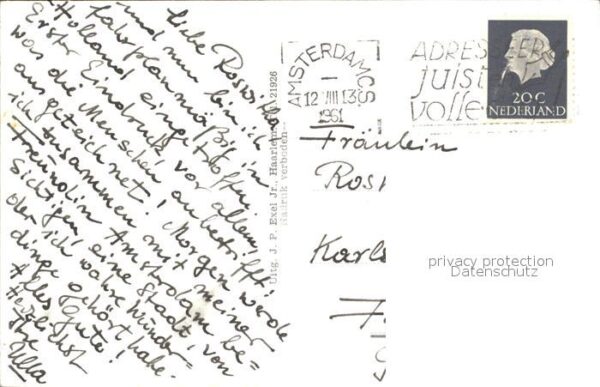 Liebe Roswitha
und nun bin ich
fahrplanmäßig in
Holland eingetroffen.
Erster Eindruck vor allem,
was die Menschen anbetrifft:
ausgezeichnet! Morgen werde
ich zusammen mit meiner
Freundin Amsterdam be-
sichtigen, eine Stadt, von
der ich wahre Wunder-
dinge gehört habe.
Alles Gute!
Herzlichst
Ihre
Ulla
Uitg. J. P. Exel Jr., Haarlem 21926
Nadruk verboden
AMSTERDAM CS
12 VIII 13
1961
ADRESSEER
juist
volle
20 C
NEDERLAND
Fräulein
Ros
Karls
privacy protection
Datenschutz